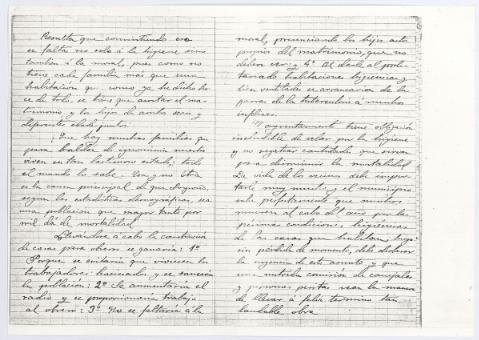 Resulta que consintiendo eso
se falta no solo á la higiene sino
tambien á la moral, pues como no
tiene cada familia más que una
habitacion que como ya he dicho
es de todo, se tiene que acostar el ma-
trimonio y los hijos de ambos sexos y
diferentes edades juntos.
Que hay muchas familias que
para baldon de ignominia nuestra
viven en tan lastimoso estado; todo
el mundo lo sabe. Esa y no otra
es la causa principal de que Logroño,
según las estadísticas demográficas, sea
una poblacion que mayor tanto por
mil dá de mortalidad.
Llevandose á cabo la construccion
de casas para obreros se ganaria: 1º
Porque se evitaria que viviesen los
trabajadores hacinados, y se sanearia
la poblacion: 2º Se aumentaria el
radio y se proporcionaria trabajo
al obrero: 3º No se faltaria á la
moral, presenciando los hijos actos
propios del matrimonio, que no
deben ver: y 4º Al darle al prole-
tariado habitaciones higienicas y
bien ventiladas se arrancarian de las
garras de la tuberculosis a muchos
infelices.
El ayuntamiento tiene obligacion
ineludible de velar por la higiene
y no regatear cantidades que sirvan
para disminuir la mortalidad.
La vida de los vecinos debe impor-
tarle muy mucho, y el municipio
sabe perfectamente que muchos
mueren al cabo del año por las
pesimas condiciones higienicas
de las casas que habitan,
sin perdida de momento, debe declarar
la urgencia de este asunto y que
una nutrida comision de concejales
y personas peritas vean la manera
de llevar á feliz termino tan
laudable obra.